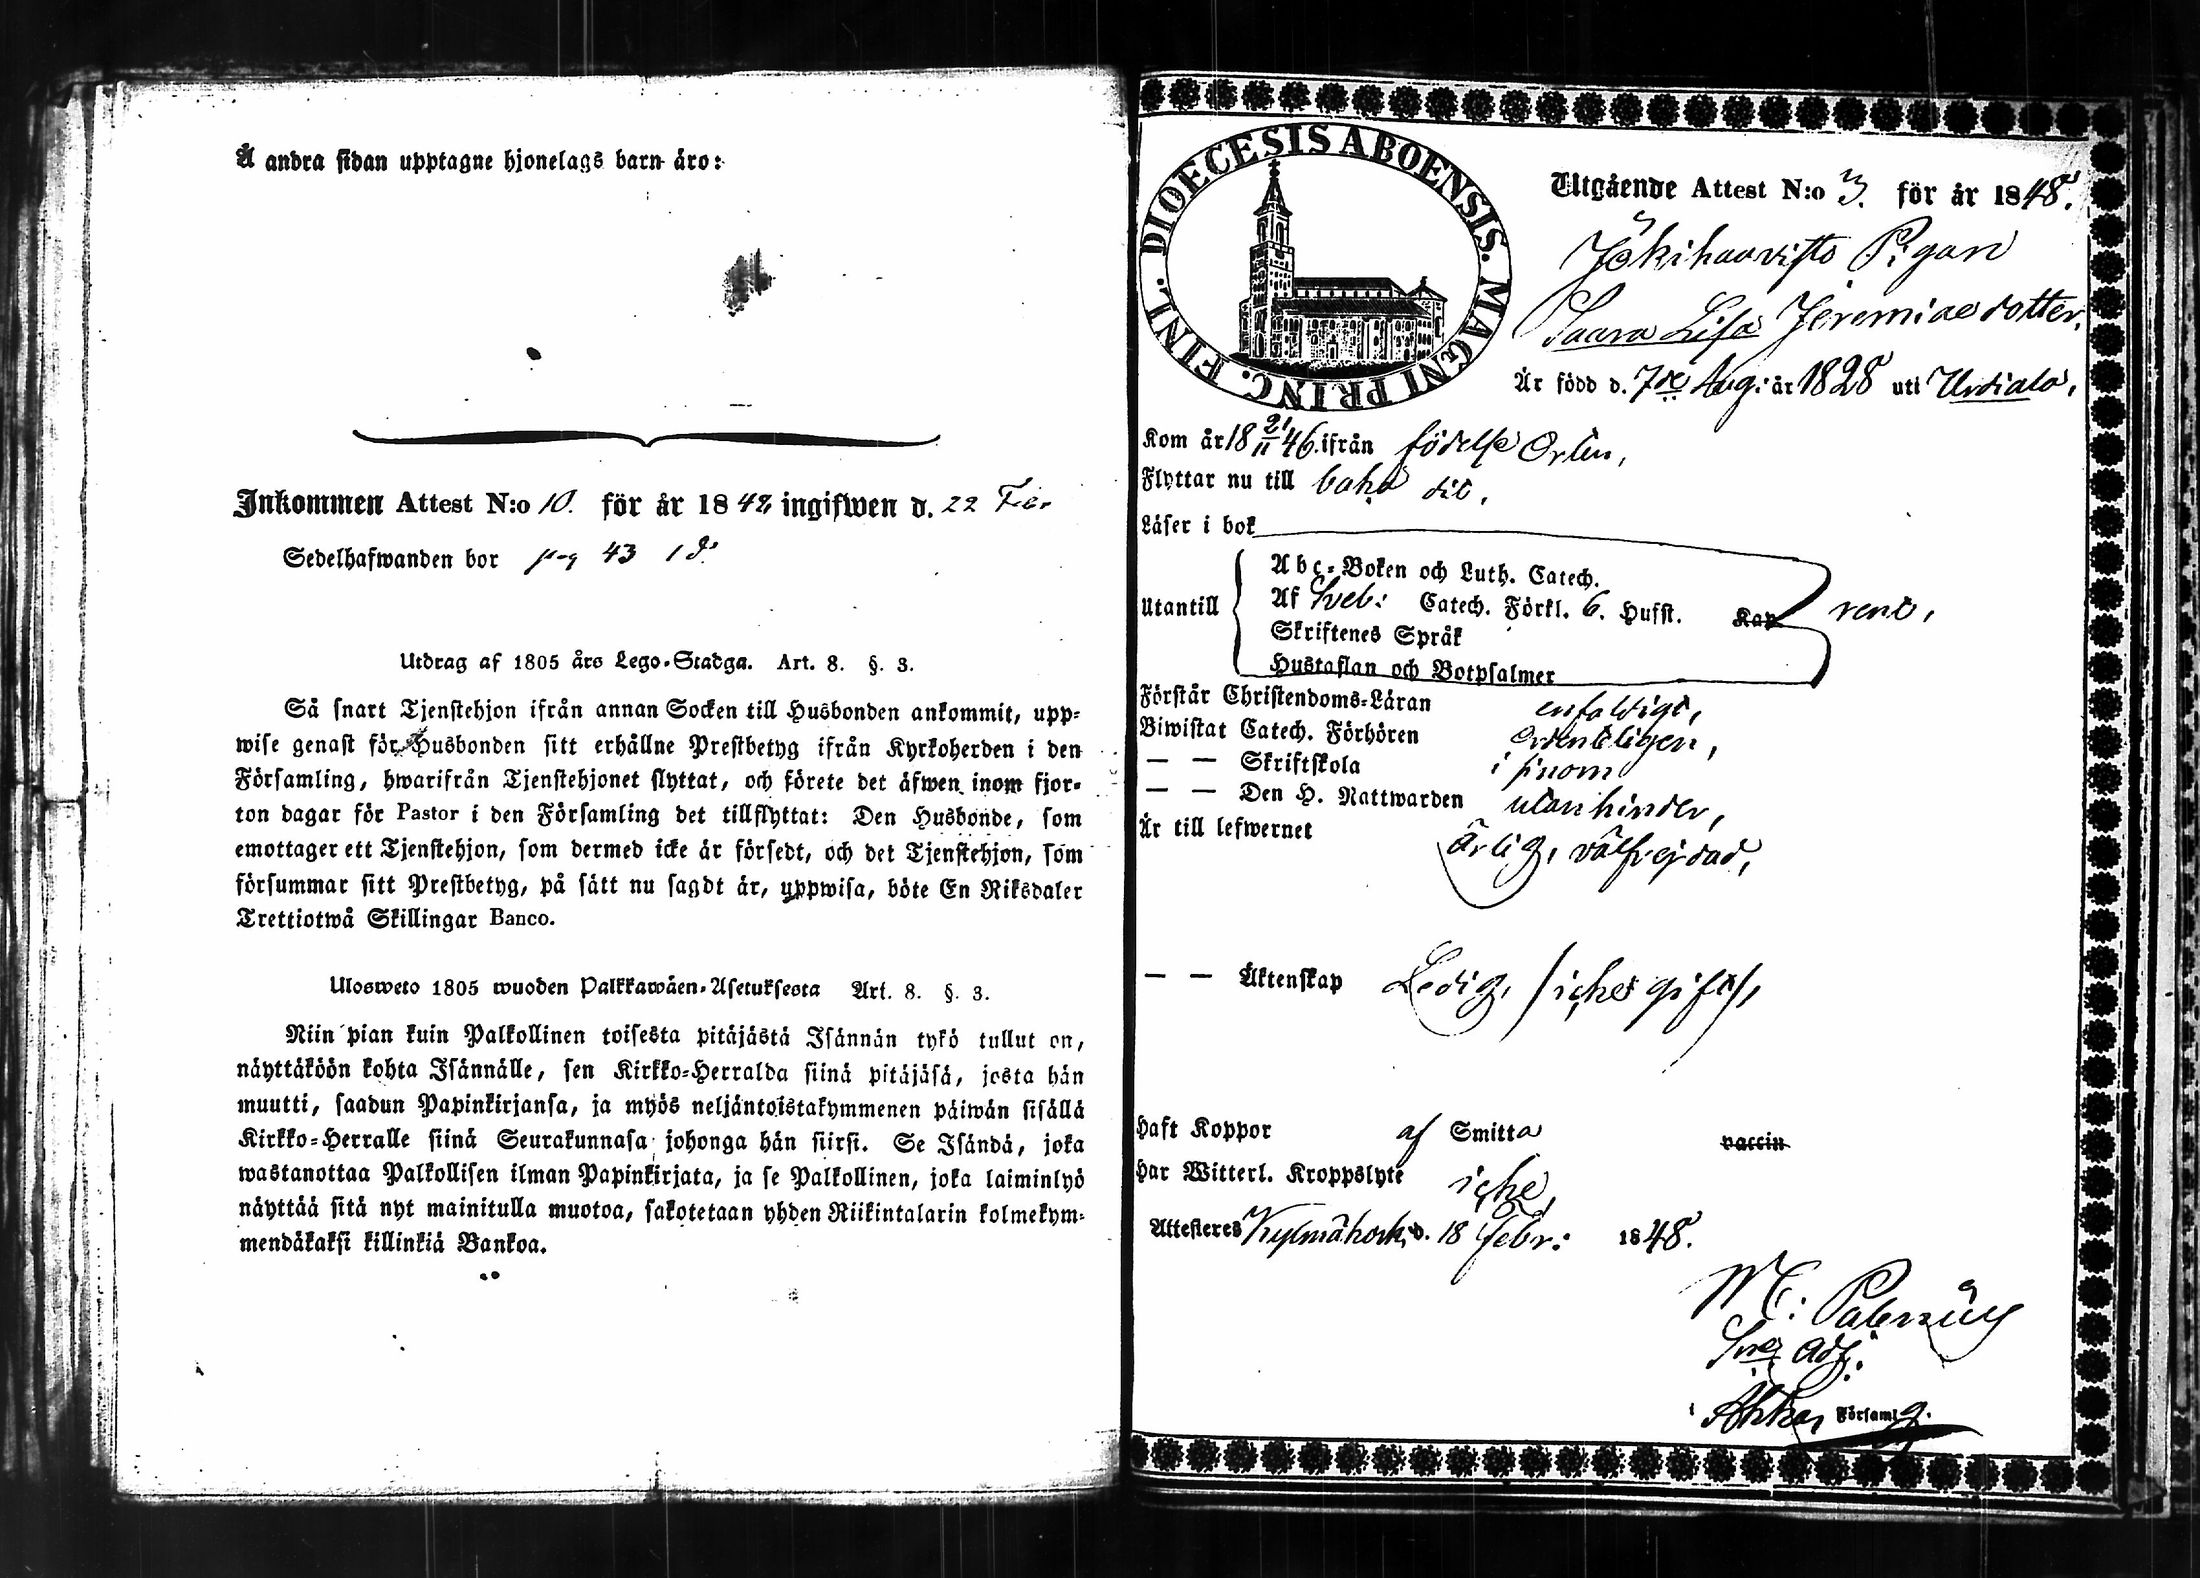 Å andra sidan upptagne hjonelags barn äro:
Inkommen Attest N:o 10. för år 1848 ingifwen d. 22 Febr
Sedelhafwanden bor pag 43
Utdrag af 1805 års Lego-Stadga. Art. 8. §. 3.
Så snart Tjenstehjon ifrån annan Socken till Husbonden ankommit, upp-
wise genast för Husbonden sitt erhållne Prestbetyg ifrån Kyrkoherden i den
Församling, hwarifrån Tjenstehjonet flyttat, och förete det äfwen inom fjor-
ton dagar för Pastor i den Församling det tillflyttat: Den Husbonde, som
emottager ett Tjenstehjon, som dermed icke är försedt, och det Tjenstehjon, som
försummar sitt Prestbetyg, på sätt nu sagdt är, uppwisa, böte En Riksdaler
Trettiotwå Skillingar Banco.
Ulosweto 1805 wuoden Palkkawäen-Asetuksesta Art. 8. §. 3.
Niin pian kuin Palkollinen toisesta pitäjästä Isännän tykö tullut on,
näyttäköön kohta Isännälle, sen Kirkko-Herralda siinä pitäjäsä, josta hän
muutti, saadun Papinkirjansa, ja myös neljäntoistakymmenen päiwän sisällä
Kirkko-Herralle siinä Seurakunnasa johonga hän siirsi. Se Isändä, joka
wastanottaa Palkollisen ilman Papinkirjata, ja se Palkollinen, joka laiminlyö
näyttää sitä nyt mainitulla muotoa, sakotetaan yhden Riikintalarin kolmekym-
mendäkaksi killinkiä Bankoa.
DIOECESIS ABOENSIS. MAGNI PRINC. FINL.
Utgående Attest N:o 3. för år 1848.
Jokihaavisto Pigan
Saara Lisa Jeremiaedotter,
Är född d. 7de Aug: år 1828 uti Urdiala,
Kom år 18 21/11 46. ifrån födelse Orten,
Flyttar nu till baka dit,
Läser i bok
Abc-Boken och Luth. Catech.
Utantill Af Sveb: Catech. Förkl. 6. Hufst. Kap rent,
Skriftenes Språk
Hustaflan och Botpsalmer
Förstår Christendoms-Läran enfaldigt,
Biwistat Catech. Förhören ordentligen,
— — Skriftskola i sinom
— — Den H. Nattwarden utan hinder,
Är till lefwernet ärlig, välfrejdad,
— — Äktenskap Ledig, /icke gift/,
Haft Koppor af Smitta vaccin
Har Witterl. Kroppslyte icke,
Attesteres Kylmäkoski d. 18 Febr: 1848.
Adj:
i Akka Församlg.